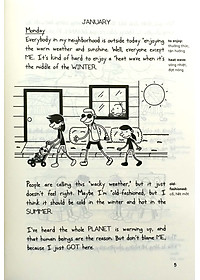 JANUARY
Monday
Everybody in my neighborhood is outside today "enjoying
the warm weather and sunshine. Well, everyone except
ME. It's kind of hard to enjoy a "heat wave when it's
the middle of the WINTER.
to enjoy:
thưởng thức,
tận hưởng
heat wave
sóng nhiệt,
đợt nóng
People are calling this "wacky weather," but it just
doesn't feel right. Maybe I'm "old-fashioned, but I
think it should be cold in the winter and hot in the
SUMMER.
old-
fashioned:
cổ, hết mốt
I've heard the whole PLANET is warming up, and
that human beings are the reason. But don't blame ME,
because I just GOT here.